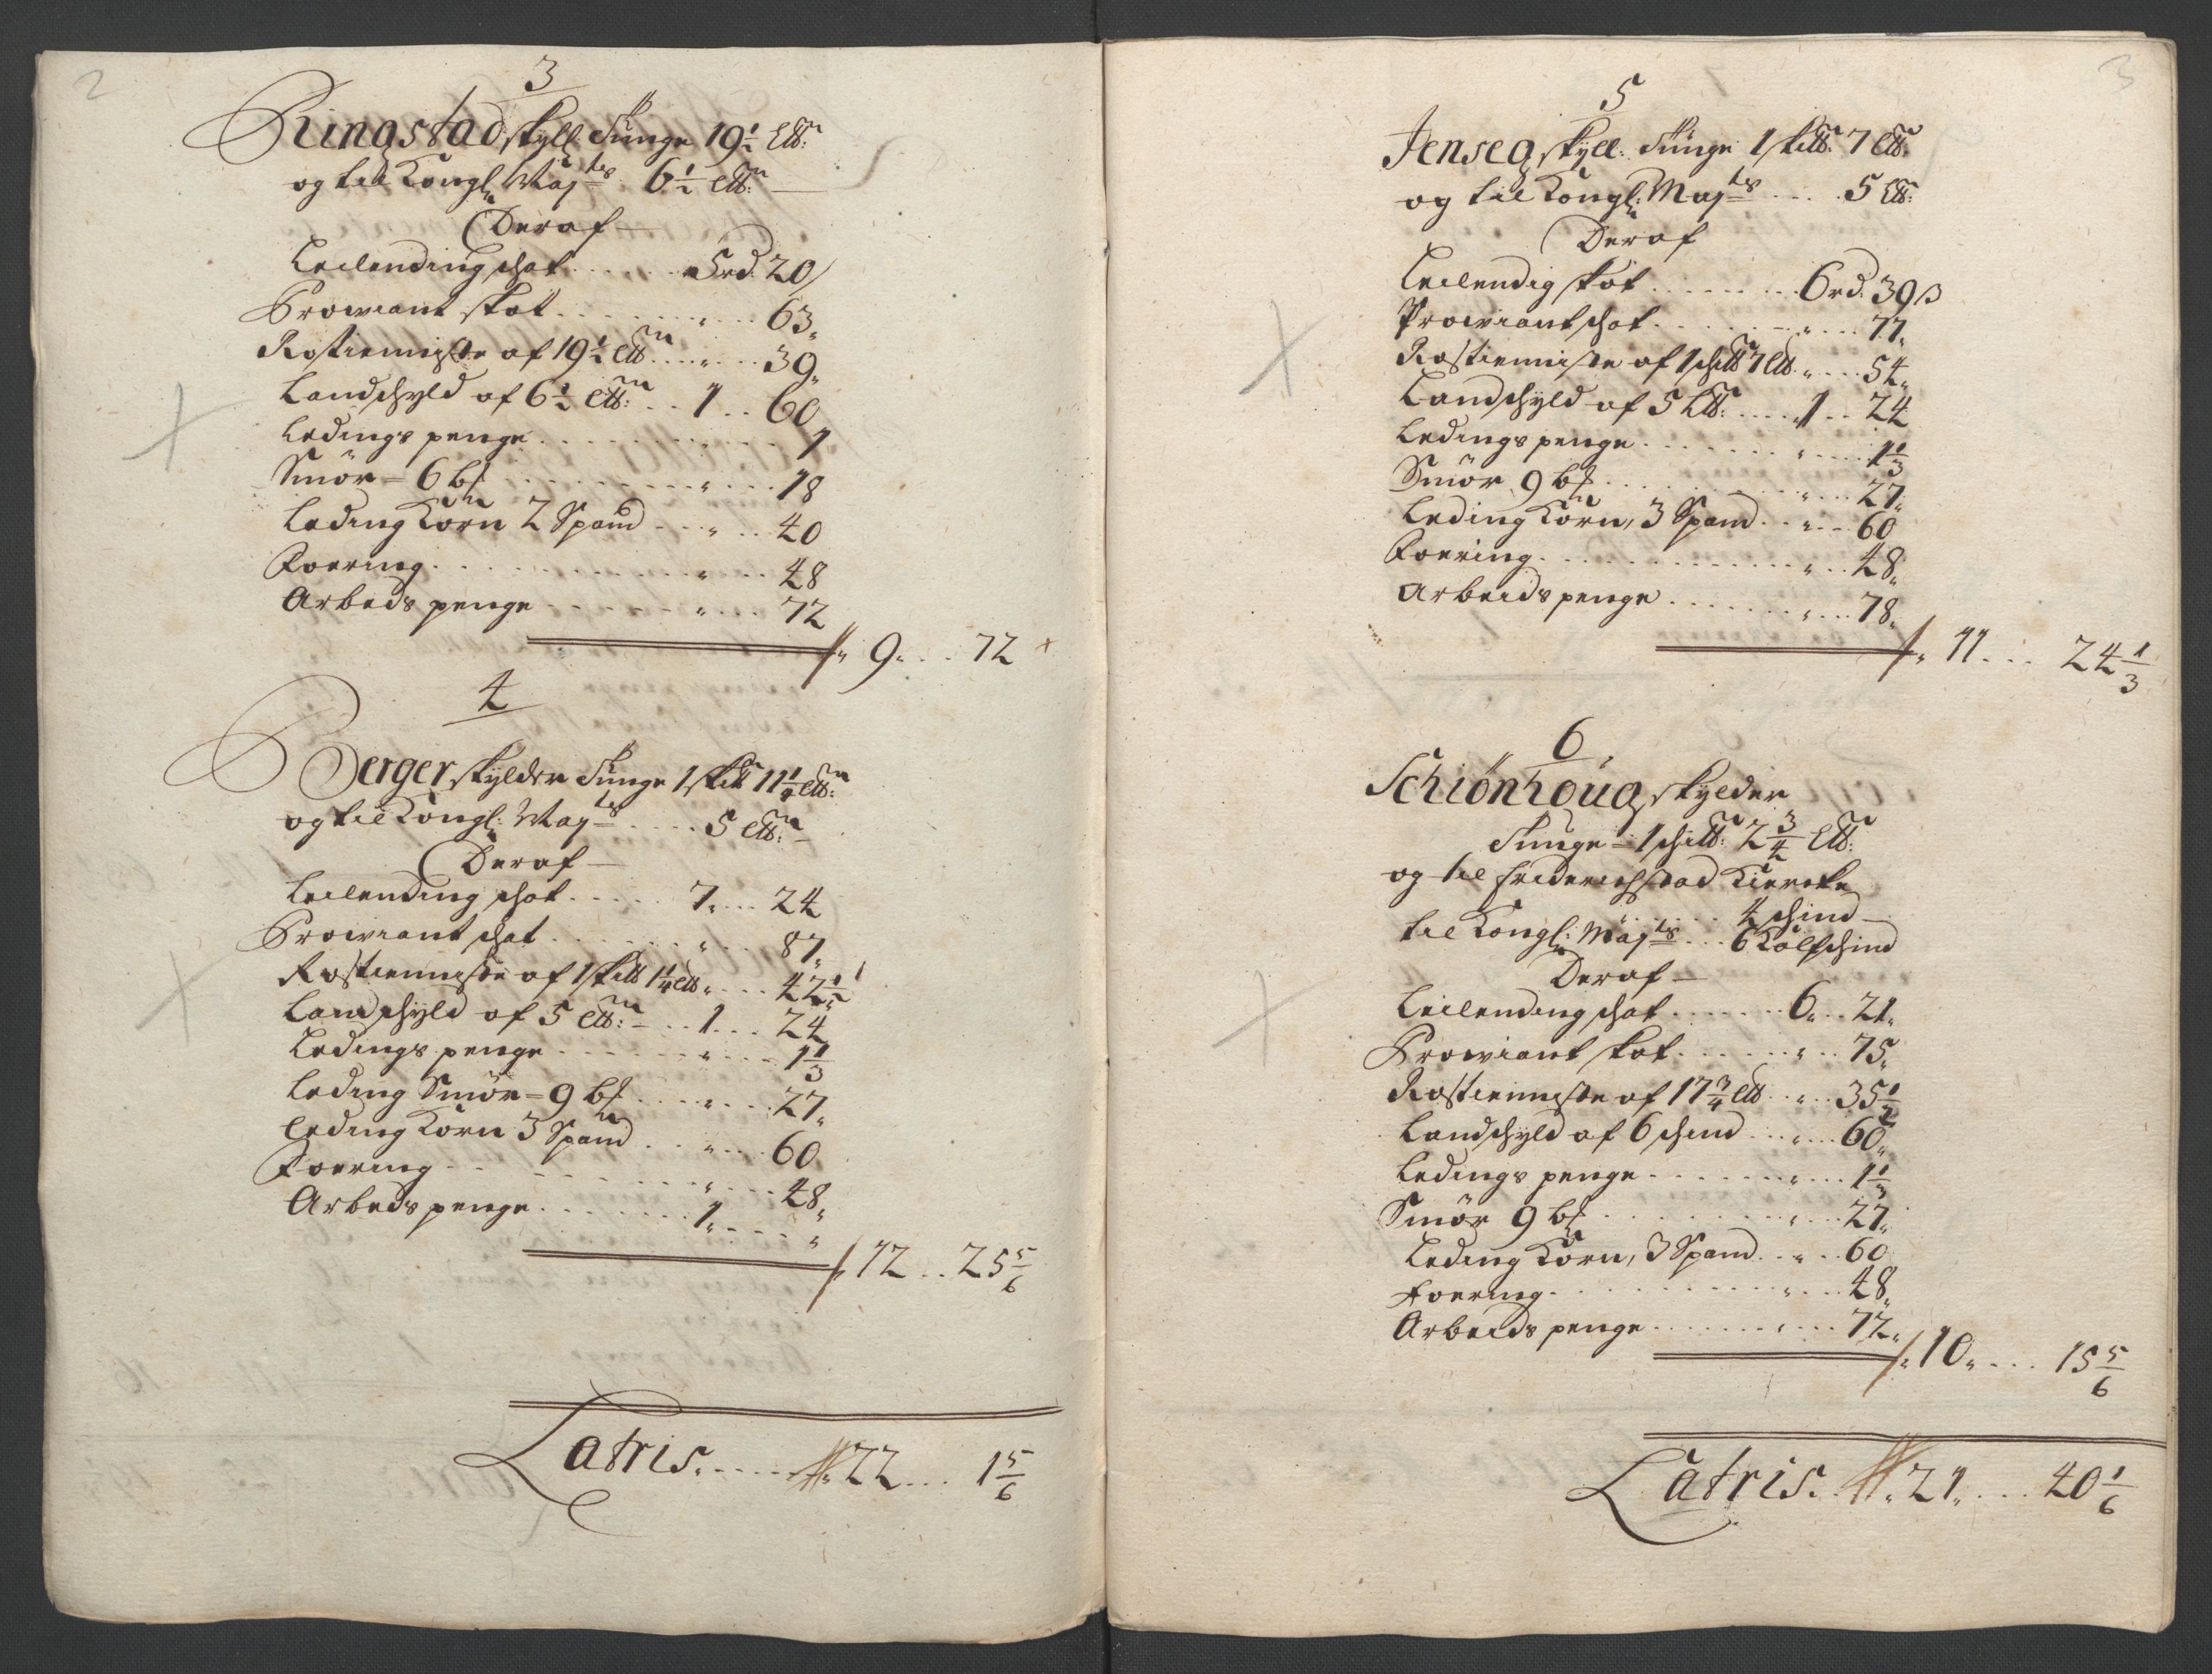 2
3
Ringstad skyll: Tunge 19½ Ltt:
og til Kongl: Mayts 6½ Ltt:
Deraf
Leilending schat ...... 5 rd. 20
Proviant skat ...... " .. 63
Rostienniste af 19½ Ltt ... " ... 39
Landschyld af 6½ Ltt: .. 1 .. 60
Ledings penge ...... 1
Smör = 6 bl ...... " ... 18
Leding Korn 2 Spand ... " .. 40
Foering ...... " .. 48
Arbeds penge ...... " ... 72
9 ... 72
4
Berger skylder Tunge 1 skltt 11¼ Ltt:
og til Kongl: Mayts .... 5 Ltt:
Deraf
Leilending schat ..... 7 .... 24
Proviant schat ...... " ... 87
Rostienniste af 1 skltt 1¼ Ltt " ... 42½
Landschyld af 5 Ltt: .. 1 ... 24
Ledings penge ...... " ... 1⅓
Leding Smör = 9 bl ..... " ... 27
Leding Korn 3 Spand .. " ... 60
Foering ...... " ... 48
Arbeds penge ....... 1 .... "
12 .. 25 5/6
Latris. ..... 22 ... 1 5/6
3
5
Jenseg skyll: Tunge 1 skltt: 7 Ltt:
og til Kongl: Mayts .... 5 Ltt:
Deraf
Leilendig skat ....... 6 rd: 39 ß
Proviant schat ...... " ... 77
Rostienniste af 1 schltt 7 Ltt " ... 54
Landschyld af 5 Ltt: .... 1 .. 24
Ledings penge ...... " .... 1⅓
Smör 9 bl ...... " ... 27
Leding Korn, 3 Spand .. " ... 60
Foering ...... " .. 48
Arbeids penge ...... " ... 78
11 ... 24⅓
6
Schiönhoug skylder
Tunge = 1 schltt: 2¾ Ltt:
og til Friderichstad Kiercke
...... 4 schind
til Kongl: Mayts ... 6 Kalfschind
Deraf
Leilending schat ...... 6 ... 21
Proviant skat ...... " .. 75
Rostienniste af 17¾ Ltt .. " .. 35½
Landschyld af 6 schind ... " ... 60
Ledings penge ...... " ... 1⅓
Smör 9 bl ...... " ... 27
Leding Korn, 3 Spand .. " .. 60
Foering ...... " ... 48
Arbeids penge ...... " ... 72
10 .... 15 5/6
Latris. 21 .... 40 1/6